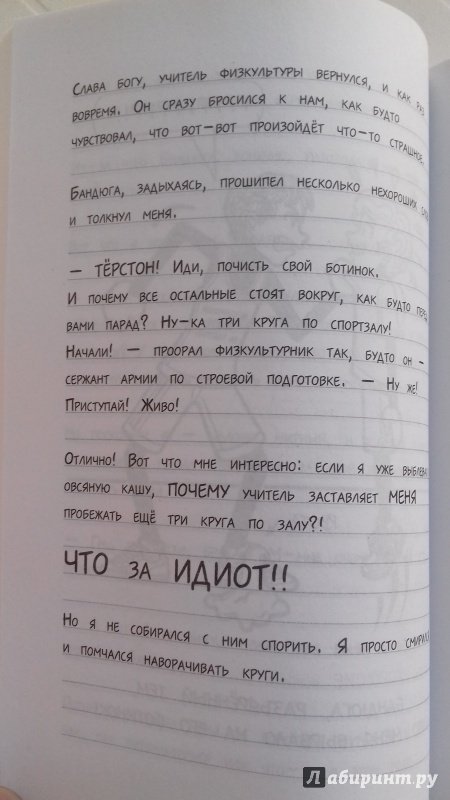 Слава богу, учитель физкультуры вернулся, и как раз
вовремя. Он сразу бросился к нам, как будто
чувствовал, что вот-вот произойдёт что-то страшное.
Бандюга, задыхаясь, прошипел несколько нехороших
и толкнул меня.
— ТЁРСТОН! Иди, почисть свой ботинок.
И почему все остальные стоят вокруг, как будто перед
вами парад? Ну-ка три круга по спортзалу!
Начали! — проорал физкультурник так, будто он -
сержант армии по строевой подготовке. — Ну же!
Приступай! Живо!
Отлично! Вот что мне интересно: если я уже выблева
овсяную кашу, ПОЧЕМУ учитель заставляет МЕНЯ
пробежать ещё три круга по залу?!
ЧТО за ИДИОТ!!
Но я не собирался с ним спорить. Я просто смирился
и помчался наворачивать круги.
Лабиринт.ру